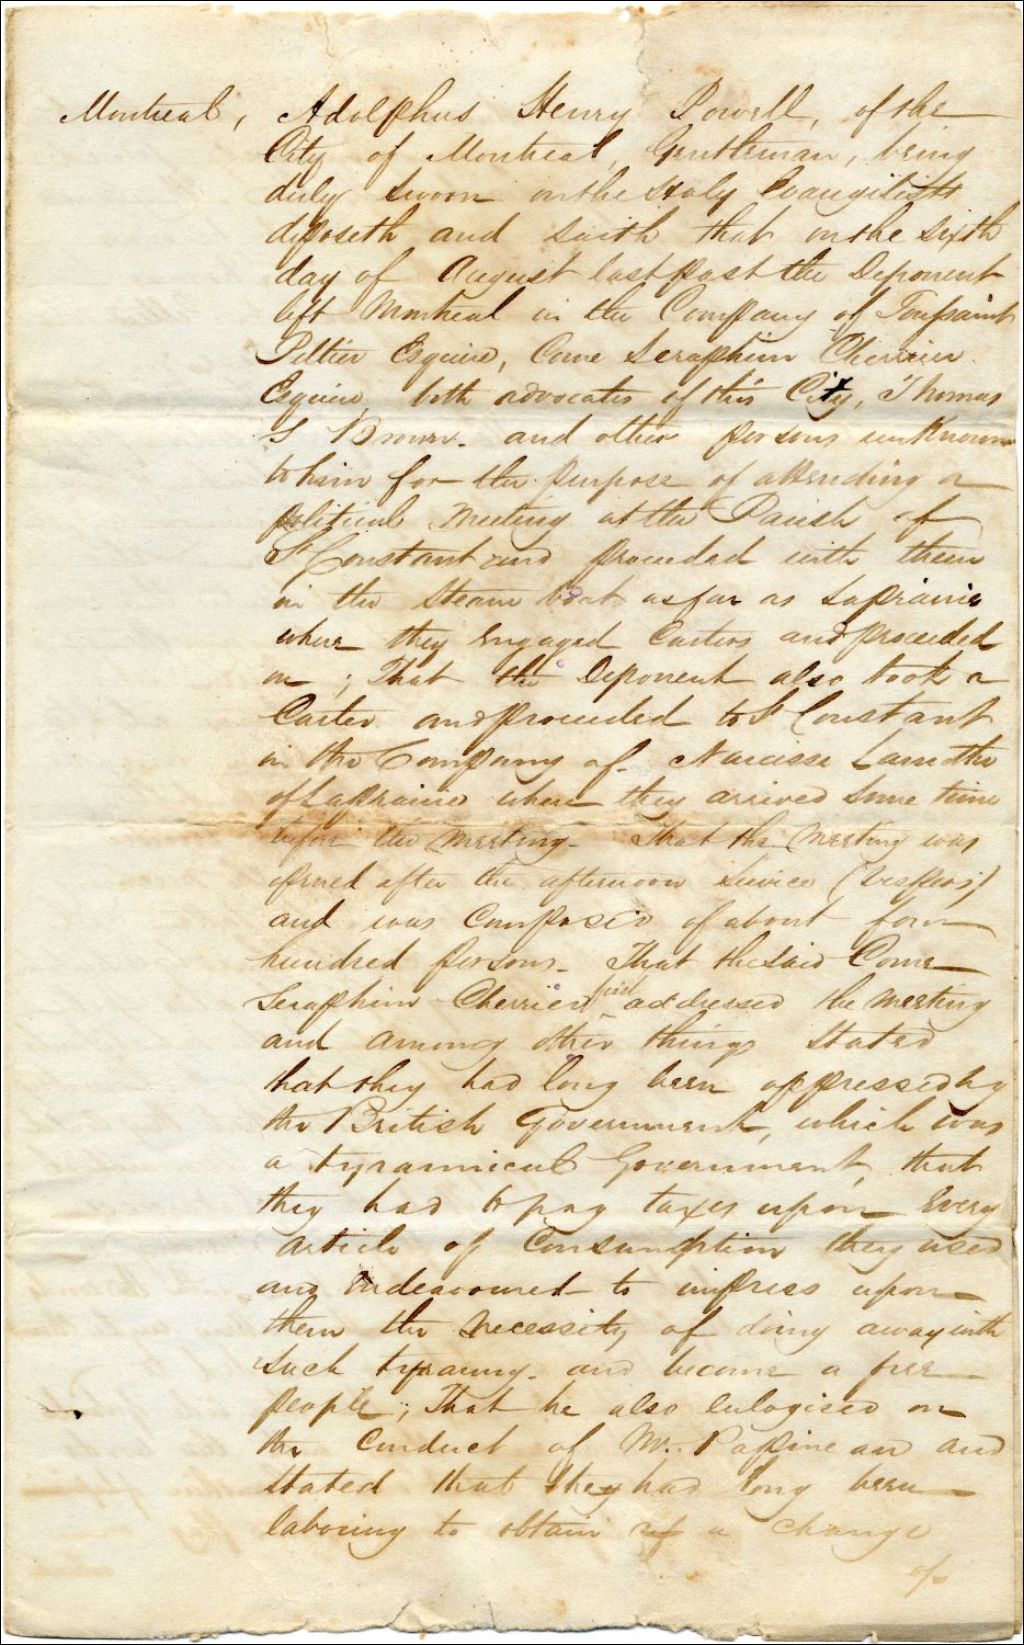 Montreal, Adolphus Henry Powell, of the
City of Montreal, Gentleman, being
duly sworn on the Holy Evangilists
deposeth and saith that on the sixth
day of August last past the Deponent
left Montreal in the Company of Toussaint
Peltier Esquire, Come Seraphim Cherrier
Esquire both advocates of this City, Thomas
S Brown. and other persons unknown
to him for the purpose of attending a
political Meeting at the Parish of
St Constant and proceeded with them
in the Steam boat as far as Laprairie
where they Engaged Carters and proceeded
on; That the Deponent also took a
Carter and proceeded to St Constant
in the Company of Narcisse Lamothe
of Laprairie where they arrived some time
before the Meeting. That the Meeting was
opened after the afternoon Service (Vespers)
and was Composed of about four
hundred persons. That the said Come
Seraphim Cherrier first addressed the Meeting
and among other things stated
that they had long been oppressed by
the British Government, which was
a tyrannical Government, that
they had to pay taxes upon Every
article of Consumption they used
and Endeavoured to impress upon
them the necessity of doing away with
such tyranny. and become a free
people; That he also Eulogised on
the Conduct of Mr. Papineau and
stated that they had long been
laboring to obtain a change
of